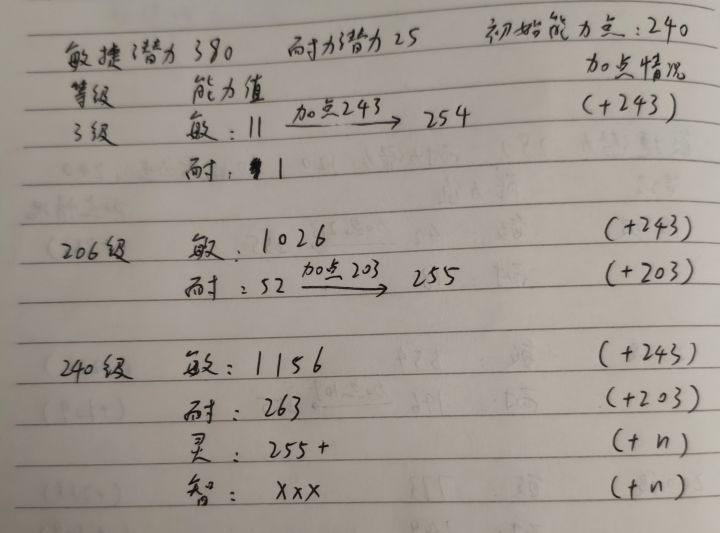 敏捷潜力 380 耐力潜力 25 初始能力点:240
等级 能力值 加点情况
3级 敏:11 加点243 → 254 (+243)
耐:1
206级 敏:1026 (+243)
耐:52 加点203 → 255 (+203)
240级 敏:1156 (+243)
耐:263 (+203)
灵:255+ (+n)
智:xxx (+n)